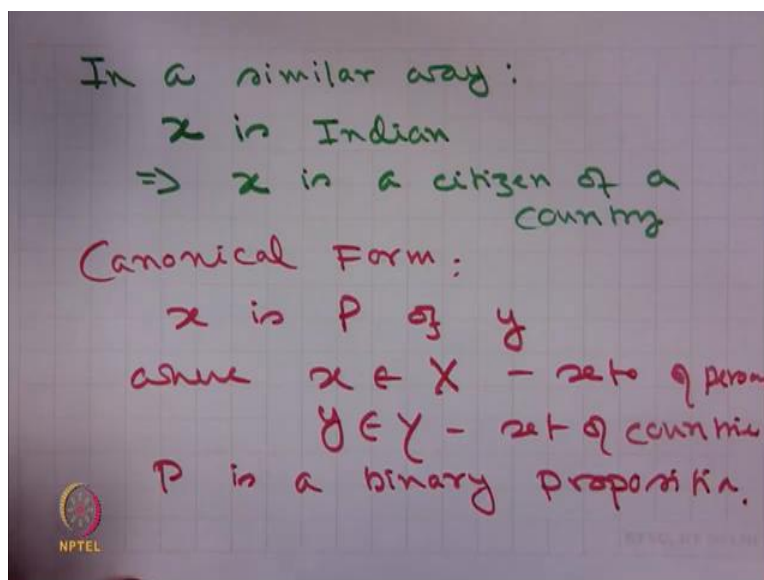 In a similar way :
x is Indian
=> x is a citizen of a
country
Canonical Form :
x is P of y
where x ∈ X - set of person
y ∈ Y - set of countrie
P is a binary proposition.
NPTEL